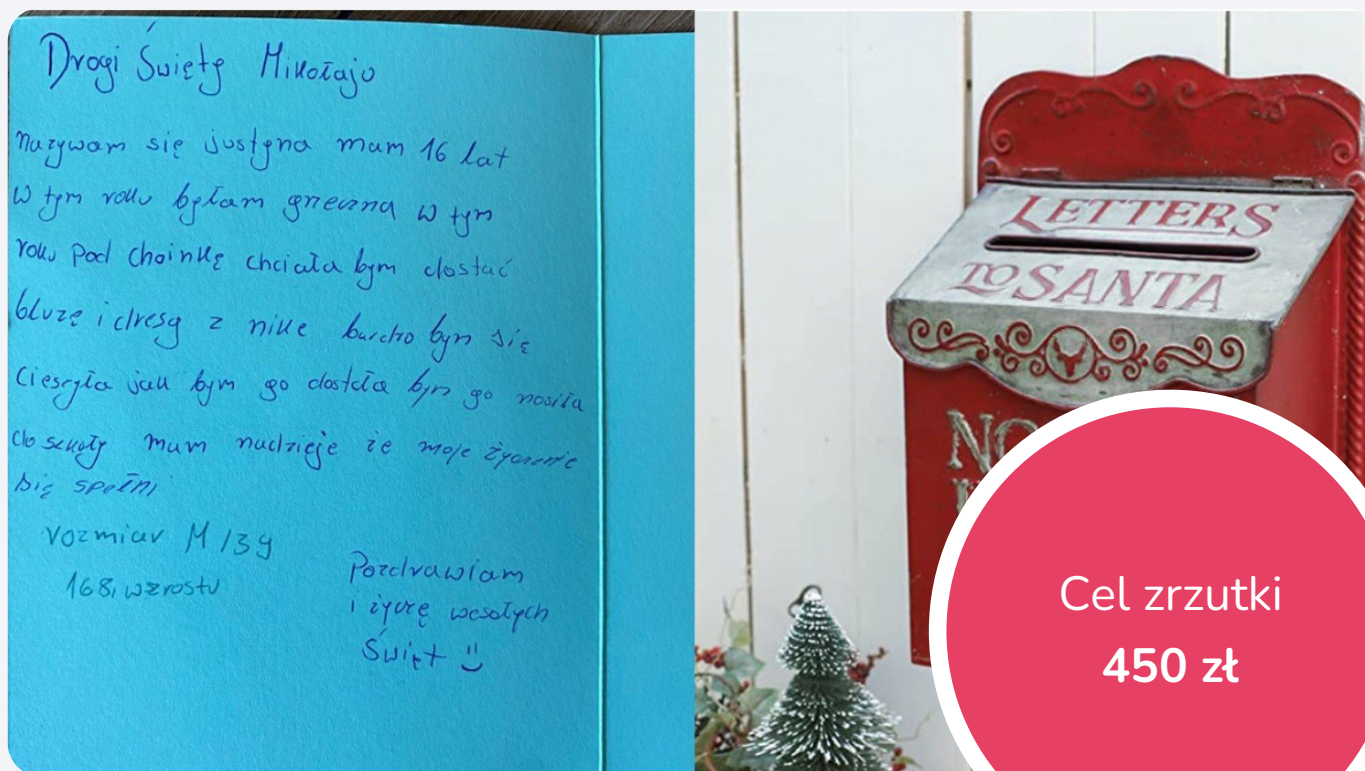 Drogi Święty Mikołajo
nazywam się justyna mam 16 lat
w tym roku byłam grzeczna w tym
roku pod choinkę chciała bym dostać
bluzę i dresy z nike bardzo bym się
Cieszyła jak bym go dostała bym go nosiła
do szkoły mam nadzieje że moje życzenie
się spełni
rozmiar M 139
168, wzrostu
Pozdrawiam
i życzę wesołych
Świąt
LETTERS
TO SANTA
NO
Cel zrzutki
450 zł